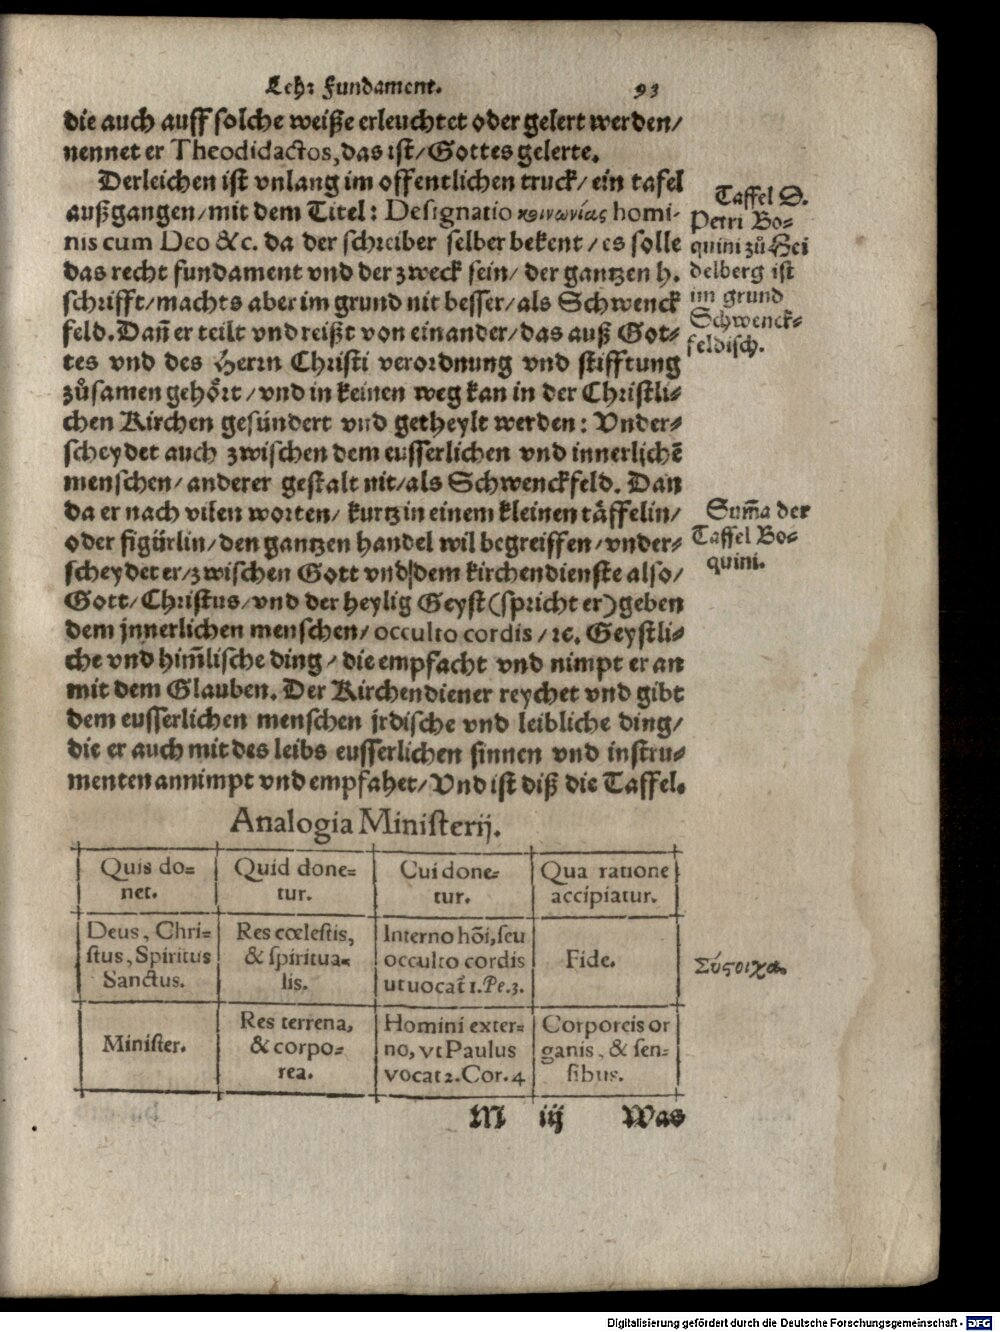 Lehr Fundament. 93
die auch auff solche weiße erleuchtet oder gelert werden/
nennet er Theodidactos, das ist/ Gottes gelerte.
Derleichen ist vnlang im offentlichen truck/ ein tafel
außgangen/ mit dem Titel: Designatio κοινωνίας homi-
nis cum Deo &c. da der schreiber selber bekent/ es solle
das recht fundament vnd der zweck sein/ der gantzen h.
schrifft/ machts aber im grund nit besser/ als Schwenck
feld. Dañ er teilt vnd reißt von einander/ das auß Got-
tes vnd des Herrn Christi verordnung vnd stifftung
zůsamen gehört/ vnd in keinen weg kan in der Christli-
chen Kirchen gesündert vnd getheylt werden: Vnder-
scheydet auch zwischen dem eusserlichen vnd innerlichē
menschen/ anderer gestalt nit/ als Schwenckfeld. Dan
da er nach vilen worten/ kurtz in einem kleinen täffelin/
oder figürlin/ den gantzen handel wil begreiffen/ vnder-
scheydet er/ zwischen Gott vnd dem kirchendienste also/
Gott/ Christus/ vnd der heylig Geyst (spricht er) geben
dem jnnerlichen menschen/ occulto cordis/ ꝛc. Geystli-
che vnd him̃lische ding/ die empfacht vnd nimpt er an
mit dem Glauben. Der Kirchendiener reychet vnd gibt
dem eusserlichen menschen jrdische vnd leibliche ding/
die er auch mit des leibs eusserlichen sinnen vnd instru-
menten annimpt vnd empfahet/ Vnd ist diß die Taffel.
Taffel D.
Petri Bo-
quini zů Hei
delberg ist
im grund
Schwenck-
feldisch.
Sum̃a der
Taffel Bo-
quini.
Analogia Ministerij.
Quis do-
net.
Quid done-
tur.
Cui done-
tur.
Qua ratione
accipiatur.
Deus, Chri-
stus, Spiritus
Sanctus.
Res cœlestis,
& spiritua-
lis.
Interno hõi, seu
occulto cordis
ut uocat̃ 1. Pe. 3.
Fide.
Σύςοιχα.
Minister.
Res terrena,
& corpo-
rea.
Homini exter-
no, vt Paulus
vocat 2. Cor. 4
Corporeis or
ganis, & sen-
sibus.
M iij Was
Digitalisierung gefördert durch die Deutsche Forschungsgemeinschaft - DFG